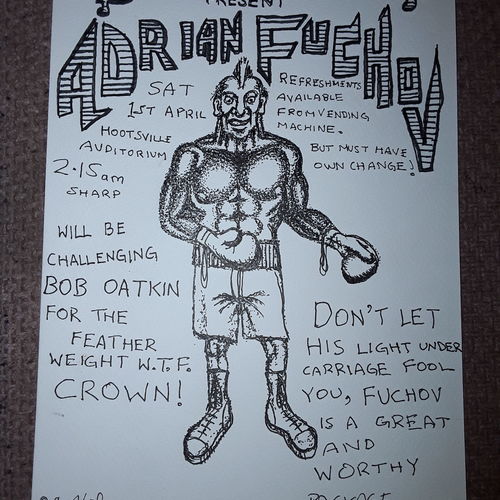 PRESENT
ADRIAN FUCHOV
SAT
1ST APRIL
HOOTSVILLE
AUDITORIUM
2.15am
SHARP
REFRESHMENTS
AVAILABLE
FROM VENDING
MACHINE.
BUT MUST HAVE
OWN CHANGE!
WILL BE
CHALLENGING
BOB OATKIN
FOR THE
FEATHER
WEIGHT W.T.F.
CROWN!
DON'T LET
HIS LIGHT UNDER
CARRIAGE FOOL
YOU, FUCHOV
IS A GREAT
AND
WORTHY